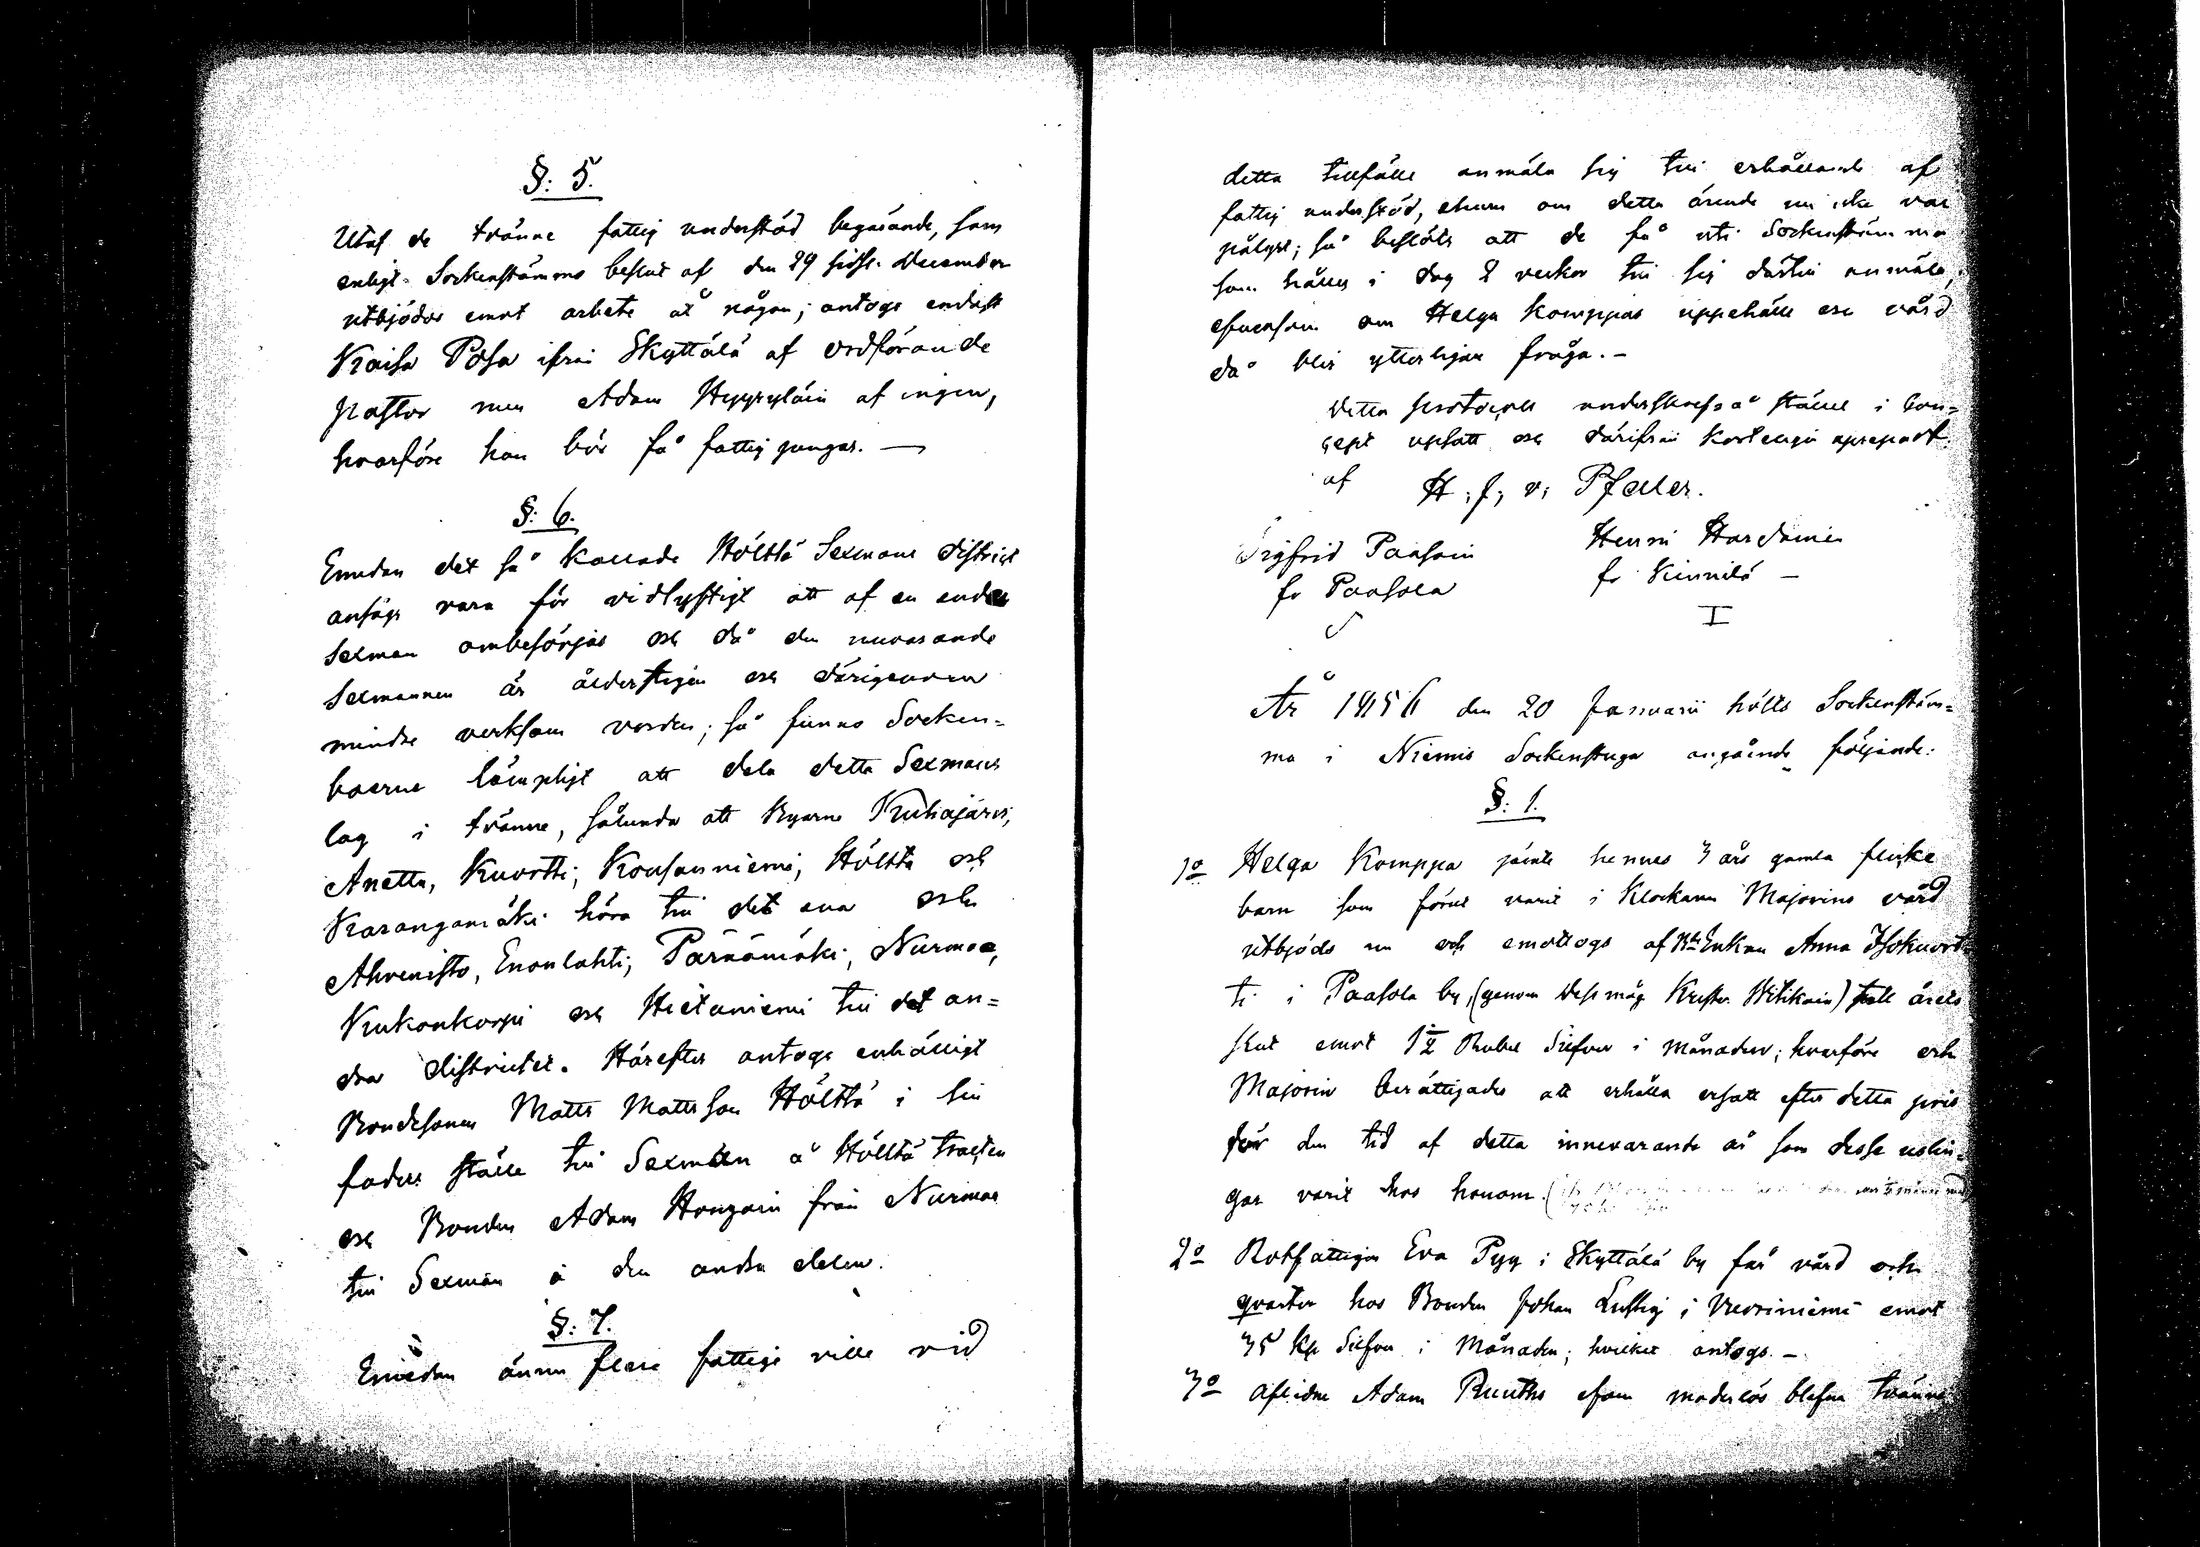 §: 5.
Utaf de tvänne fattig understöd begärande, som
enligt Sockenstämmo beslut af den 29 sistl. December
utbjödos emot arbete åt någon; antogs endast
Kaisa Posa ifrån Skyttälä af Ordförande
Pastor men Adam Hyyryläin af ingen,
hvarföre han bör få fattig pengar. —
§: 6.
Emedan det så kallade Hölttä Sexmans district
ansågs vara för vidlyftigt att af en enda
Sexman ombesörjas och då den nuvarande
Sexmannen är ålderstigen och därigenom
mindre verksam vorden; så funno Socken-
boerne lämpligt att dela detta Sexmans
lag i tvänne, sålunda att Byarne Kuhajärvi,
Anetta, Kuortti, Konsanniemi, Hölttä och
Karangamäki höra till det ena och
Ahvenisto, Enonlahti, Pärnämäki, Nurmaa,
Kukonkorpi och Hietaniemi till det an-
dra districtet. Härefter antogs enhälligt
Bondesonen Matts Mattsson Hölttä i sin
faders ställe till Sexman å Hölttä trakten
och Bonden Adam Hongain från Nurmaa
till Sexman å den andra delen.
§: 7.
Emedan ännu flere fattige ville vid
detta tillfälle anmäla sig till erhållande af
fattig understöd, ehuru om detta ärende nu icke var
pålyst; så beslöts att de få uti Sockenstämma
som hålles i dag 2 veckor till sig därtill anmäla,
efvensom om Helga Komppas uppehälle och vård
då blir ytterligare fråga. —
Detta protocoll underskrefs å stället i con-
cept upsatt och därifrån
af H. f. v. Pfaler.
Sigfrid Paasoin Henrik Hardoinen
fr Paasola fr Kinnilä —
År 1856 den 20 Januarii hölts Sockenstäm-
ma i Niemis Sockenstuga angående följande:
§: 1.
1o Helga Komppa jämte hennes 3 års gamla flicke
barn som förut varit i Klockaren Majorins vård
utbjöds nu och emottogs af Enkan Anna Isokuort-
ti i Paasola by, (genom dess måg Krister Witikain) till årets
slut emot 1½ Rubel Silfver i Månaden; hvarföre och
Majorin berättigades att erhålla ersatt efter detta pris
för den tid af detta innevarande år som desse uslin-
gar varit hos honom.
2o Rotfattiga Eva Pyy i Skyttälä by får vård och
qvarter hos Bonden Johan Lustig i Vuoriniemi emot
35 Kp Silfver i Månaden; hvilket antogs. —
3o Aflidne Adam Ruuths efven moderlös blefna tvänne